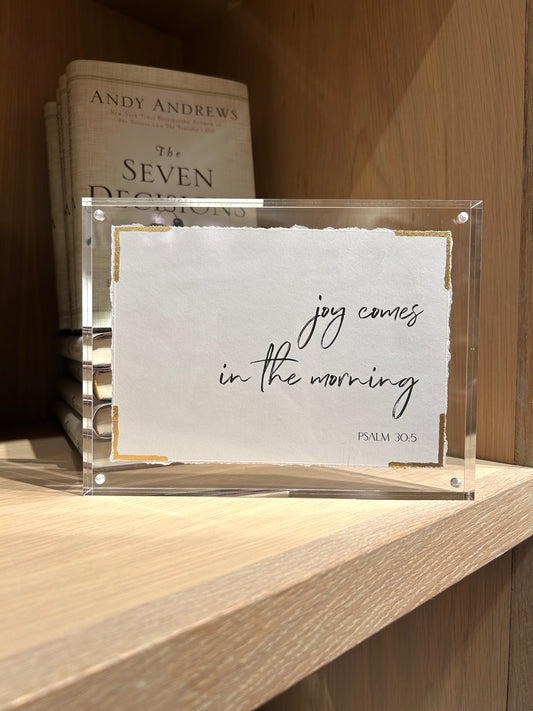 ANDY ANDREWS
New York Times Bestselling Author of
The Noticer and The Traveler's Gift
The
SEVEN
DECISIONS
joy comes
in the morning
PSALM 30:5